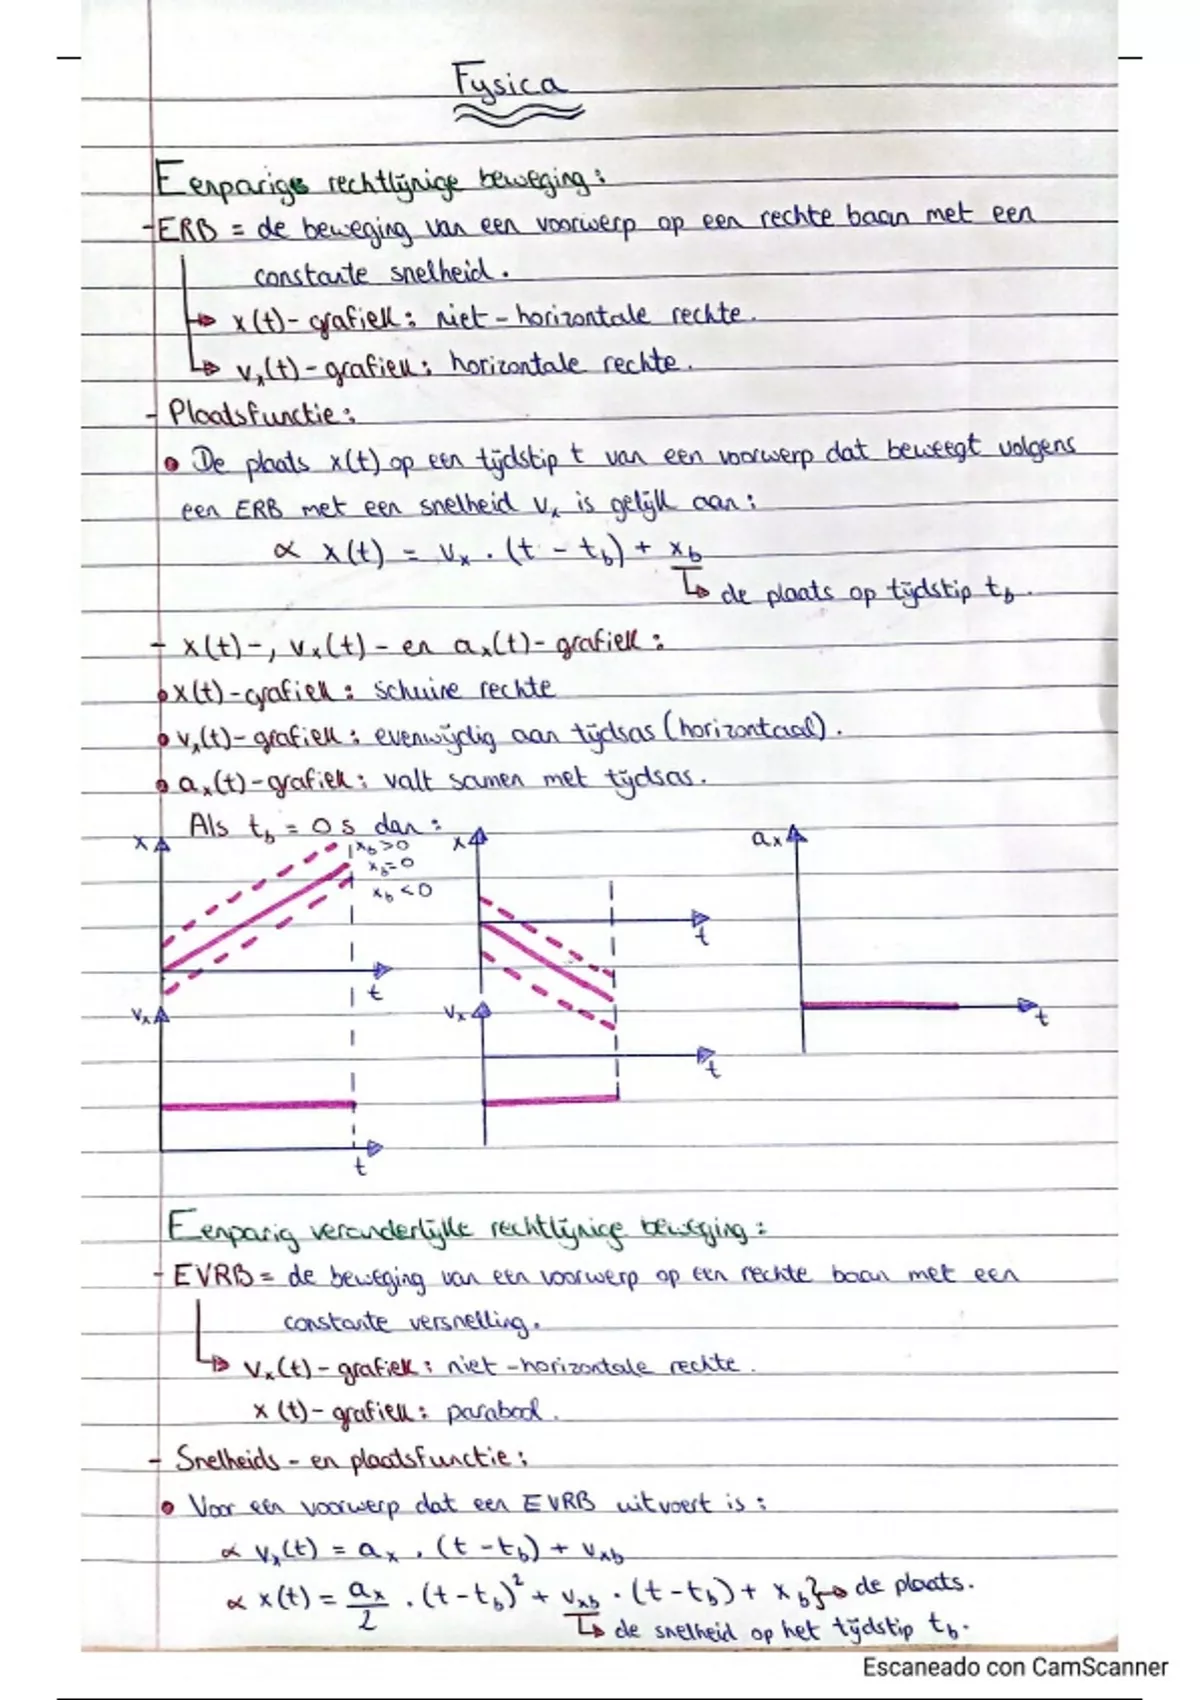 Fysica
Eenparige rechtlijnige beweging:
- ERB = de beweging van een voorwerp op een rechte baan met een
constante snelheid.
x(t)-grafiek: niet-horizontale rechte.
vₓ(t)-grafiek: horizontale rechte.
- Plaatsfunctie:
• De plaats x(t) op een tijdstip t van een voorwerp dat beweegt volgens
een ERB met een snelheid vₓ is gelijk aan:
∝ x(t) = vₓ . (t - t_b) + x_b
↳ de plaats op tijdstip t_b.
- x(t)-, vₓ(t)- en aₓ(t)-grafiek:
• x(t)-grafiek: schuine rechte
• vₓ(t)-grafiek: evenwijdig aan tijdsas (horizontaal).
• aₓ(t)-grafiek: valt samen met tijdsas.
Als t_b = 0 s dan:
x x_b>0 x aₓ
x_b=0
x_b<0
t t t
vₓ vₓ
t t
Eenparig veranderlijke rechtlijnige beweging:
- EVRB = de beweging van een voorwerp op een rechte baan met een
constante versnelling.
↳ vₓ(t)-grafiek: niet-horizontale rechte.
x(t)-grafiek: parabool.
- Snelheids- en plaatsfunctie:
• Voor een voorwerp dat een EVRB uitvoert is:
∝ vₓ(t) = aₓ . (t - t_b) + v_xb
∝ x(t) = aₓ/2 . (t - t_b)² + v_xb . (t - t_b) + x_b} → de plaats.
↳ de snelheid op het tijdstip t_b.
Escaneado con CamScanner